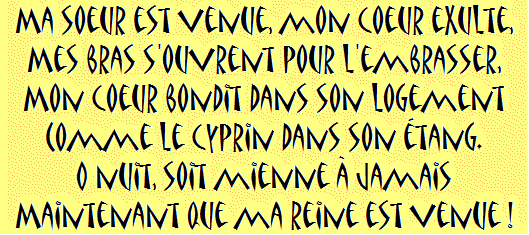 MA SOEUR EST VENUE, MON COEUR EXULTE,
MES BRAS S'OUVRENT POUR L'EMBRASSER,
MON COEUR BONDIT DANS SON LOGEMENT
COMME LE CYPRIN DANS SON ÉTANG.
O NUIT, SOIT MIENNE À JAMAIS
MAINTENANT QUE MA REINE EST VENUE !